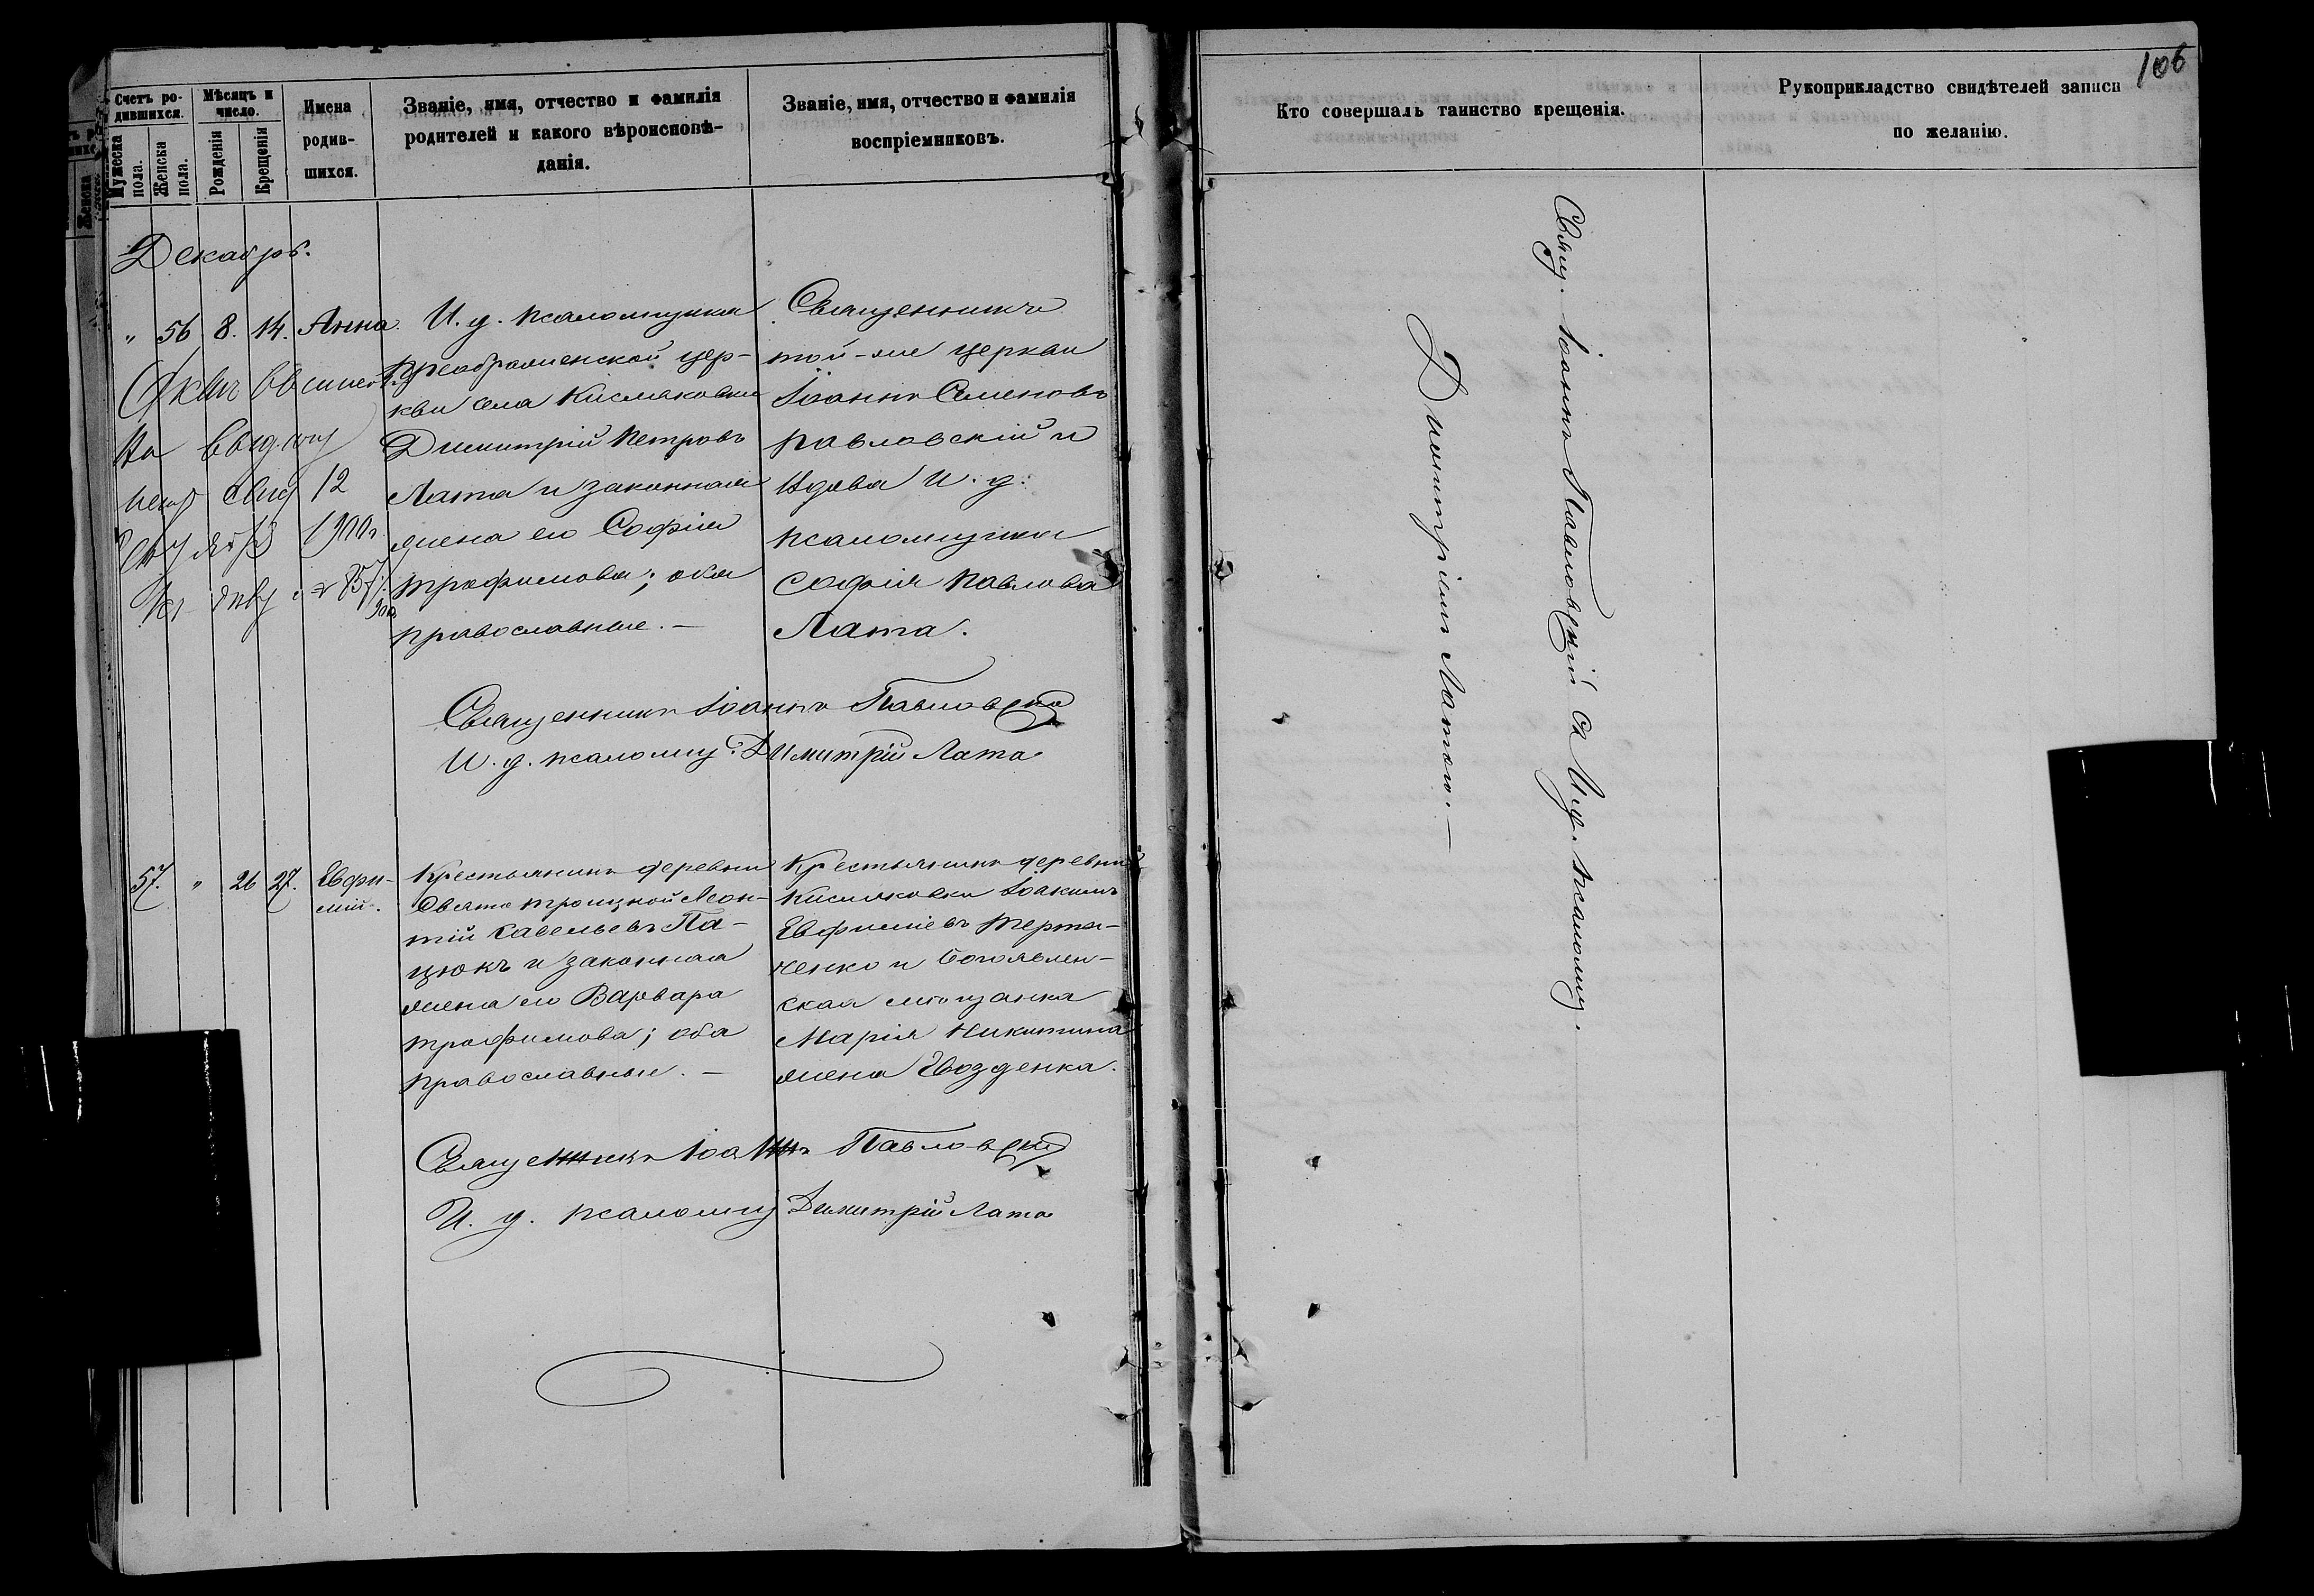 Счетъ ро-
дившихся.
Мѣсяцъ и
число.
Мужеска
пола.
Женска
пола.
Рожденія
Крещенія
Имена
родив-
шихся.
Званіе, имя, отчество и фамилія
родителей и какого вѣроисповѣ-
данія.
Званіе, имя, отчество и фамилія
воспріемниковъ.
Декабрь.
„ 56 8. 14. Анна.
И. д. псаломщика
Преображенской цер-
кви села Кисляковки
Димитрій Петровъ
Лата и законная
жена его Софія
Трофимова; оба
православные. —
Священникъ
той-же церкви
Іоаннъ Семеновъ
Павловскій и
вдова и. д.
псаломщика
Софія Павлова
Лата.
12
1900 г.
Священникъ Іоаннъ Павловскій
И. д. псаломщ. Димитрій Лата
57. „ 26 27. Евфи-
мій.
Крестьянинъ деревни
Свято Троицкой Леон-
тій Савельевъ Па-
цюкъ и законная
жена его Варвара
Трофимова; оба
православные. —
Крестьянинъ деревни
Кисляковки Іоакимъ
Евфиміевъ Терта-
ченко и Богоявлен-
ская мѣщанка
Марія Никитина
жена Гвозденка.
Священникъ Іоаннъ Павловскій
И. д. псаломщ Димитрій Лата
106
Кто совершалъ таинство крещенія.
Рукоприкладство свидѣтелей записи
по желанію.
Свящ. Іоаннъ Павловскій съ И. д. псаломщ.
Димитріемъ Латою. —